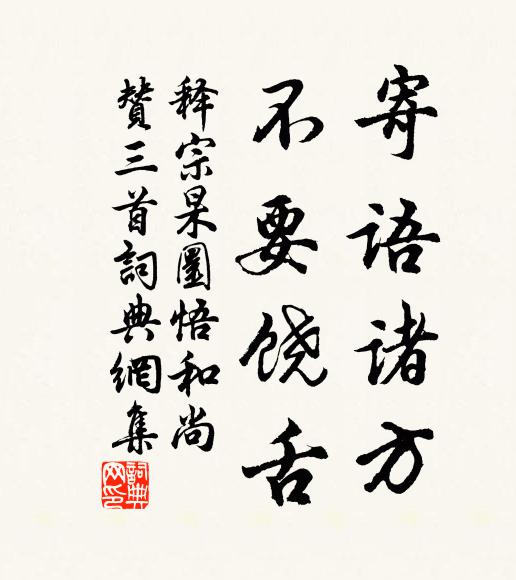 寄语诸方
不要饶舌
释宗杲圜悟和尚
赞三首詞典網集
詞典网印